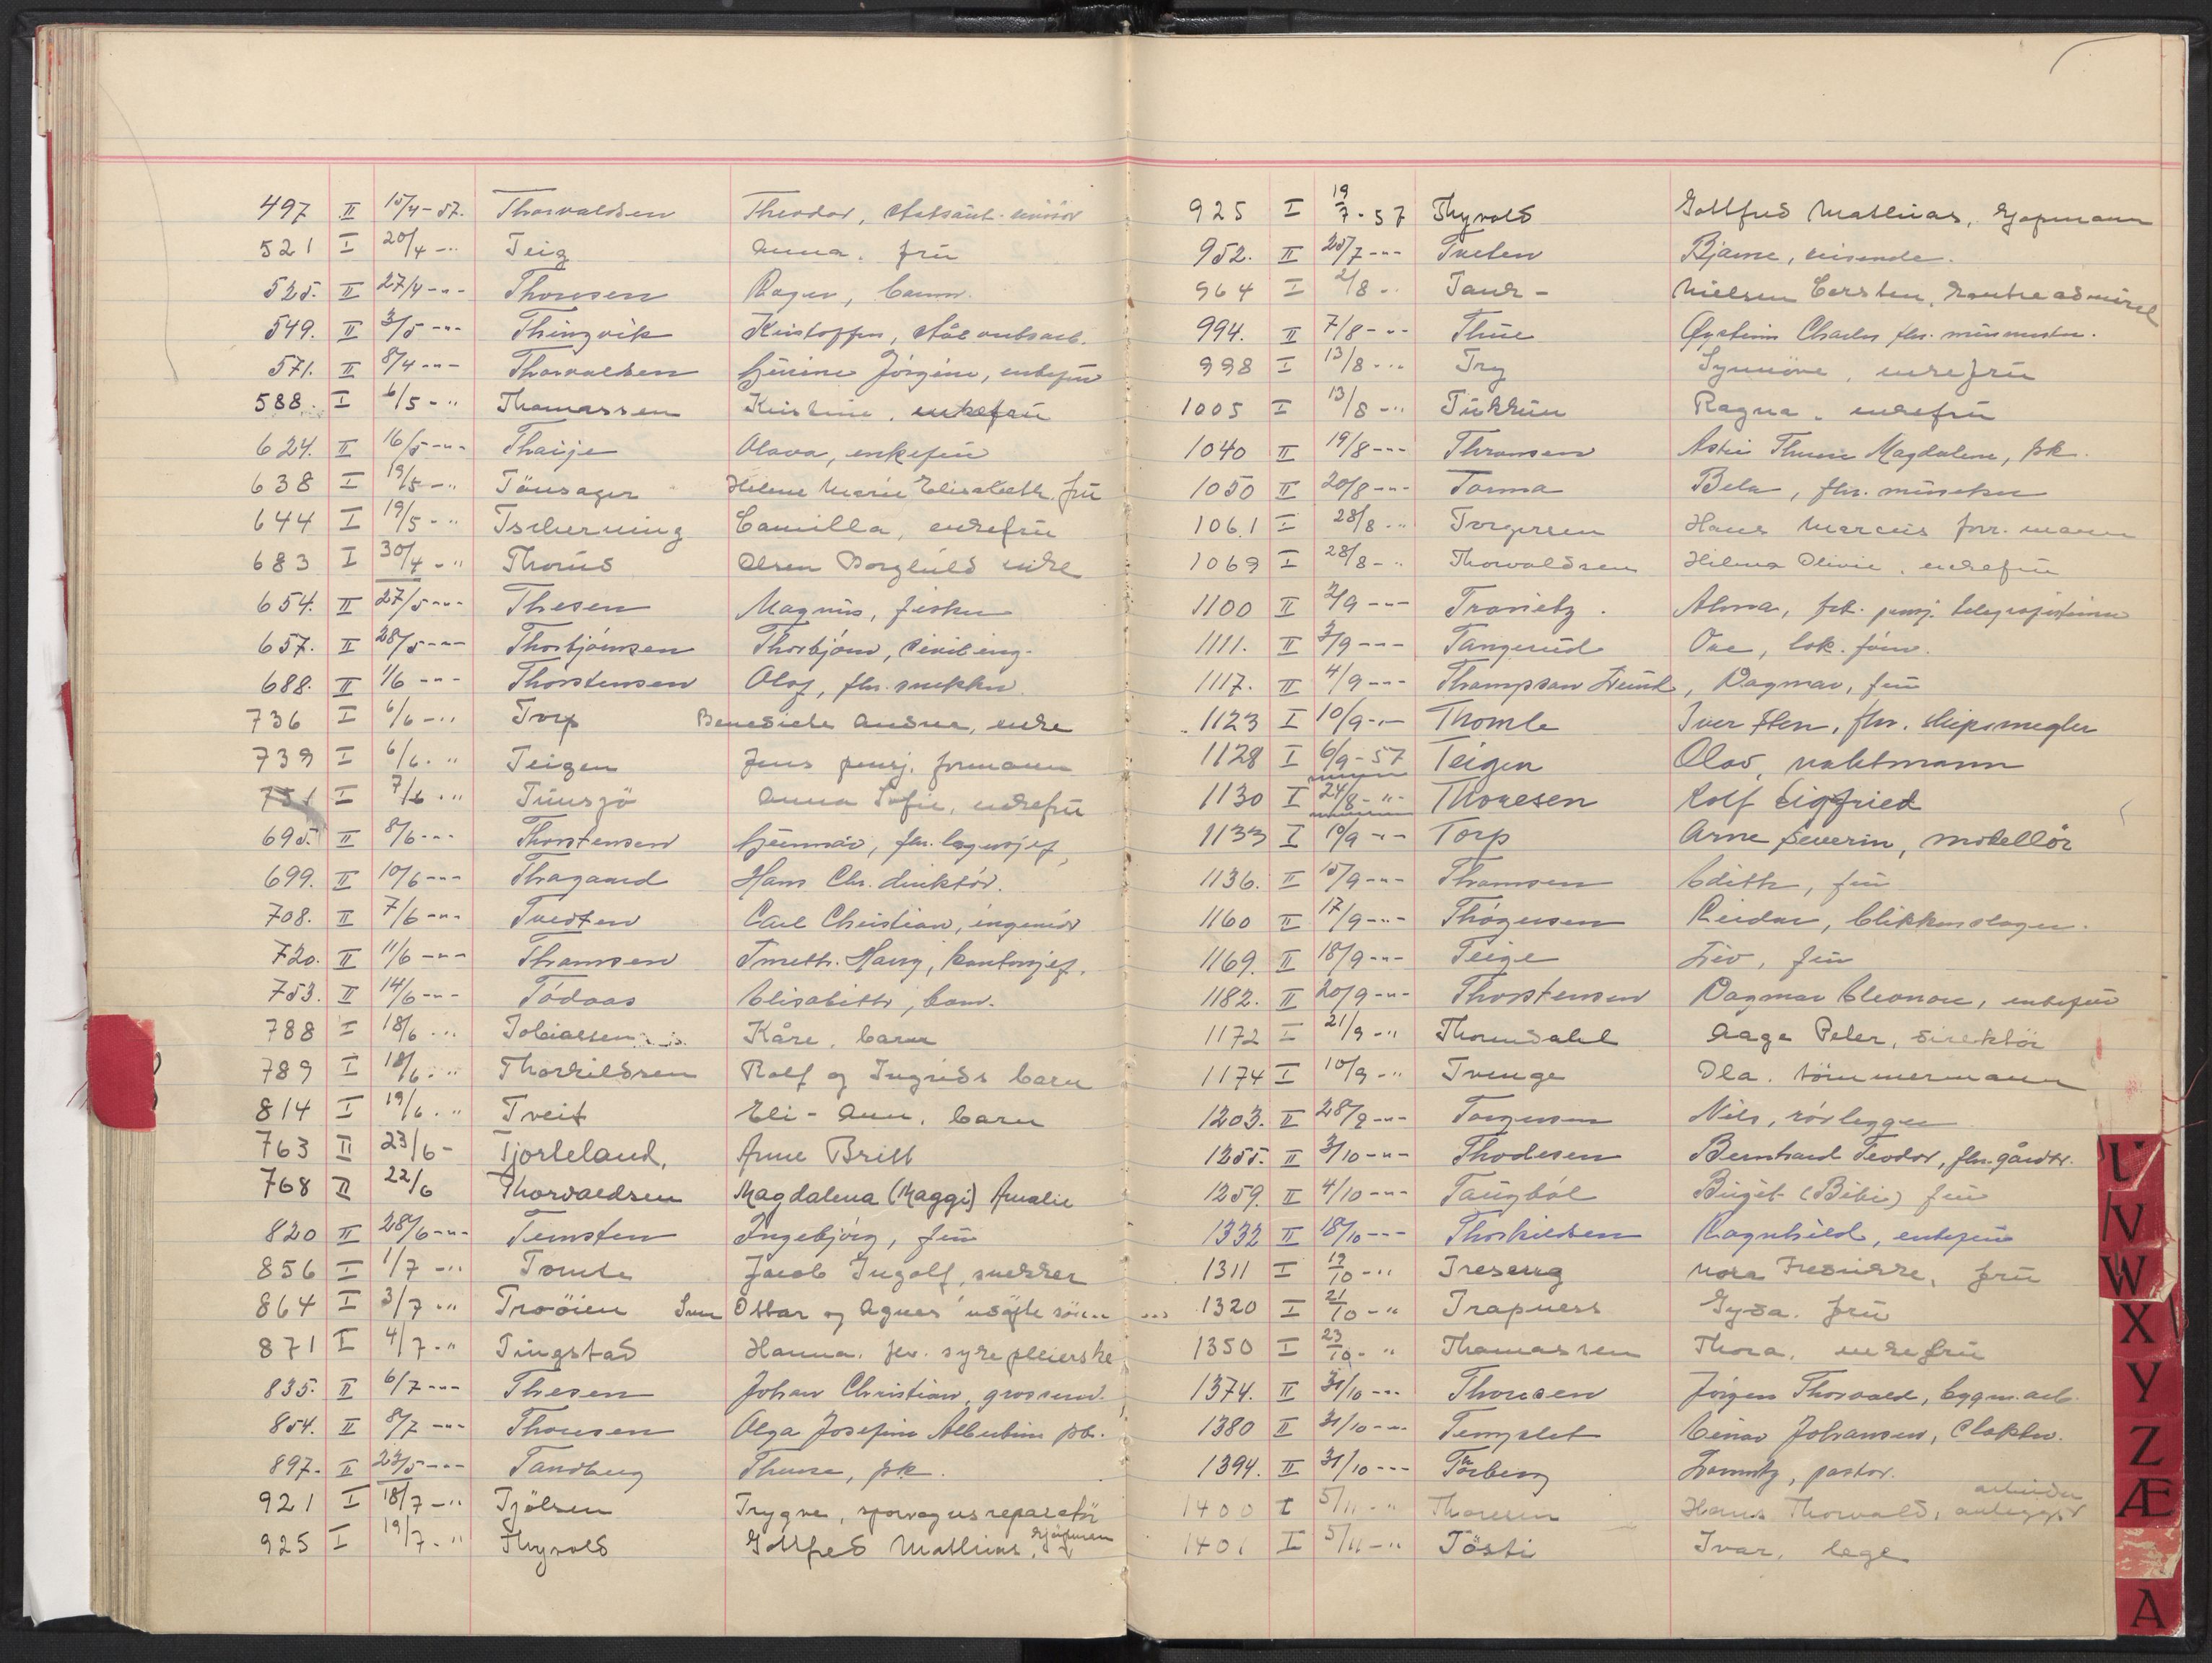 497 II 15/4-57. Thorvaldsen Theodor,
521 I 20/4 -" Teig Anna. frü
525. II 27/4 -"- Thoresen Roger, barn.
549. II 3/5 -"- Thingvik Kristoffer,
571. II 8/4 -"- Thorvaldsen Jörgine, enkefrü
588. I 6/5 -" Thomassen Kristine. enkefrü
624. II 16/5 -"- Olava, enkefrü
638 I 19/5 -" Tönsager Helene Marie Elisabeth. frü
644 I 19/5 -" Tscherning Camilla, enkefrü
683 I 30/4 -" Thorüd Olsen Borghild enke
654. II 27/5 -"- Thesen Magnus, fisker
657. II 28/5 -"- Thorbjörnsen Thorbjörn, siviling.
688. II 1/6 -"- Thorstensen Olaf, fhv. snekker.
736 I 6/6 -" Torp Benedicte Andrea, enke
739 I 6/6. " Teigen Jens pensj. formann
751 I 7/6 . " Anna Sofie, enkefrü
695. II 8/6 -"- Thorstensen Günnar, fhv. lagersjef,
699. II 10/6 -"- Thagaard Hans Chr. direktör.
708. II 7/6 -"- Tvedten Carl Christian, ingeniör
720. II 11/6 -"- Thamsen Harry, kontorsjef.
753. II 14/6 -"- Tödaas Elisabeth, barn.
788 I 18/6 . " Tobiassen Kåre. barn
789 I 18/6 . " Thorkildsen Rolf og Ingrids barn
814 I 19/6 . " Tveit Eli-Ann. barn
763 II 23/6 - Tjorleland, Anne Britt
768 II 22/6 Thorvaldsen Magdalena (Maggi) Amalie
820 II 28/6 -"- Temsten Ingebjörg, frü
856 I 1/7 -" Tomte Jacob Ingolf, snekker
864 I 3/7 -" Troöien Ottar og Agnes' udöpte sönn
871 I 4/7 -" Tingstad Hanna. fhv. sykepleierske
835. II 6/7 -"- Thesen Johan Christian, grosserer.
854. II 8/7 -"- Thoresen Olga Josefine Albertine pk.
897. II 23/5 -"- Tandberg Thora, pk.
921 I 18/7 -" Tjölsen Trygve, sporvognsreparatör
925 I 19/7 . " Thyvold Gottfred Mathias. kjöpmann
925 I 19/7 - 57 Thyvold Gottfred Mathias, kjöpmann
952. II 25/7 -"- Tveten Bjarne, reisende.
964 I 2/8 - Tank - Nielsen Carsten, kontreadmiral
994. II 7/8 -"- Thüe Øystein Charles fhv. mürmester.
998 I 13/8 -" Try Synnöve, enkefrü
1005 I 13/8 -" Ragna. enkefrü
1040 II 19/8 -"- Thoresen Magdalene, pk.
1050 II 20/8 -"- Torma Bela, fhv. müsiker
1061 I 28/8 -" Torgersen Hans Marcüs forr. mann
1069 I 28/8 -" Thorvaldsen Hilma Olivie. enkefrü
1100 II 2/9 -"- Alma, fhv. pensj. telegrafistinne
1111. II 3/9 -"- Tangerüd Ove, lok. före.
1117. II 4/9 -"- Thompson Dagmar, frü
1123 I 10/9 -"- Thomle Iver Sten, fhv. skipsmegler
1128 I 6/9 - 57 Teigen Olav, vaktmann
1130 I 24/8 -"- Thoresen Rolf Sigfried
1133 I 10/9 -"- Torp Arne Severin, modellör
1136. II 15/9 -"- Thomsen Edith, frü
1160 II 17/9 -"- Thögersen Reidar, blikkenslager.
1169. II 18/9 -"- Teige Liv, frü
1182. II 20/9 -"- Thorstensen Dagmar Eleonore, enkefrü
1172 I 21/9 -" Thorendahl Aage Peter, direktör
1174 I 10/9 -" Tvenge Ola. tömmermann
1203. II 28/9 -"- Torgersen Nils, rörlegger
1255. II 3/10 -"- Thodesen Bernhard Teodor, fhv. gårdbr.
1259. II 4/10 -"- Taugböl Birgit (Bibi) frü
1332 II 18/10 -"- Thorkildsen Ragnhild, enkefrü
1311 I 19/10 -" Treserrg Nora Fredrikke, frü
1320 I 21/10 -" Trapness Gyda. frü
1350 I 23/10 -" Thomassen Thora. enkefrü
1374. II 31/10 -"- Thoresen Jörgen Thorvald, bygn.arb.
1380 II 31/10 -"- Templet Einar Johansen,
1394. II 31/10 -"- Törberg Lorentz, pastor.
arbeider
1400 I 5/11 -" Thoresen Hans Thorvald, anleggs
1401 I 5/11 -" Tösti Ivar, lege
U
V
W
X
Y
Z
Æ
A